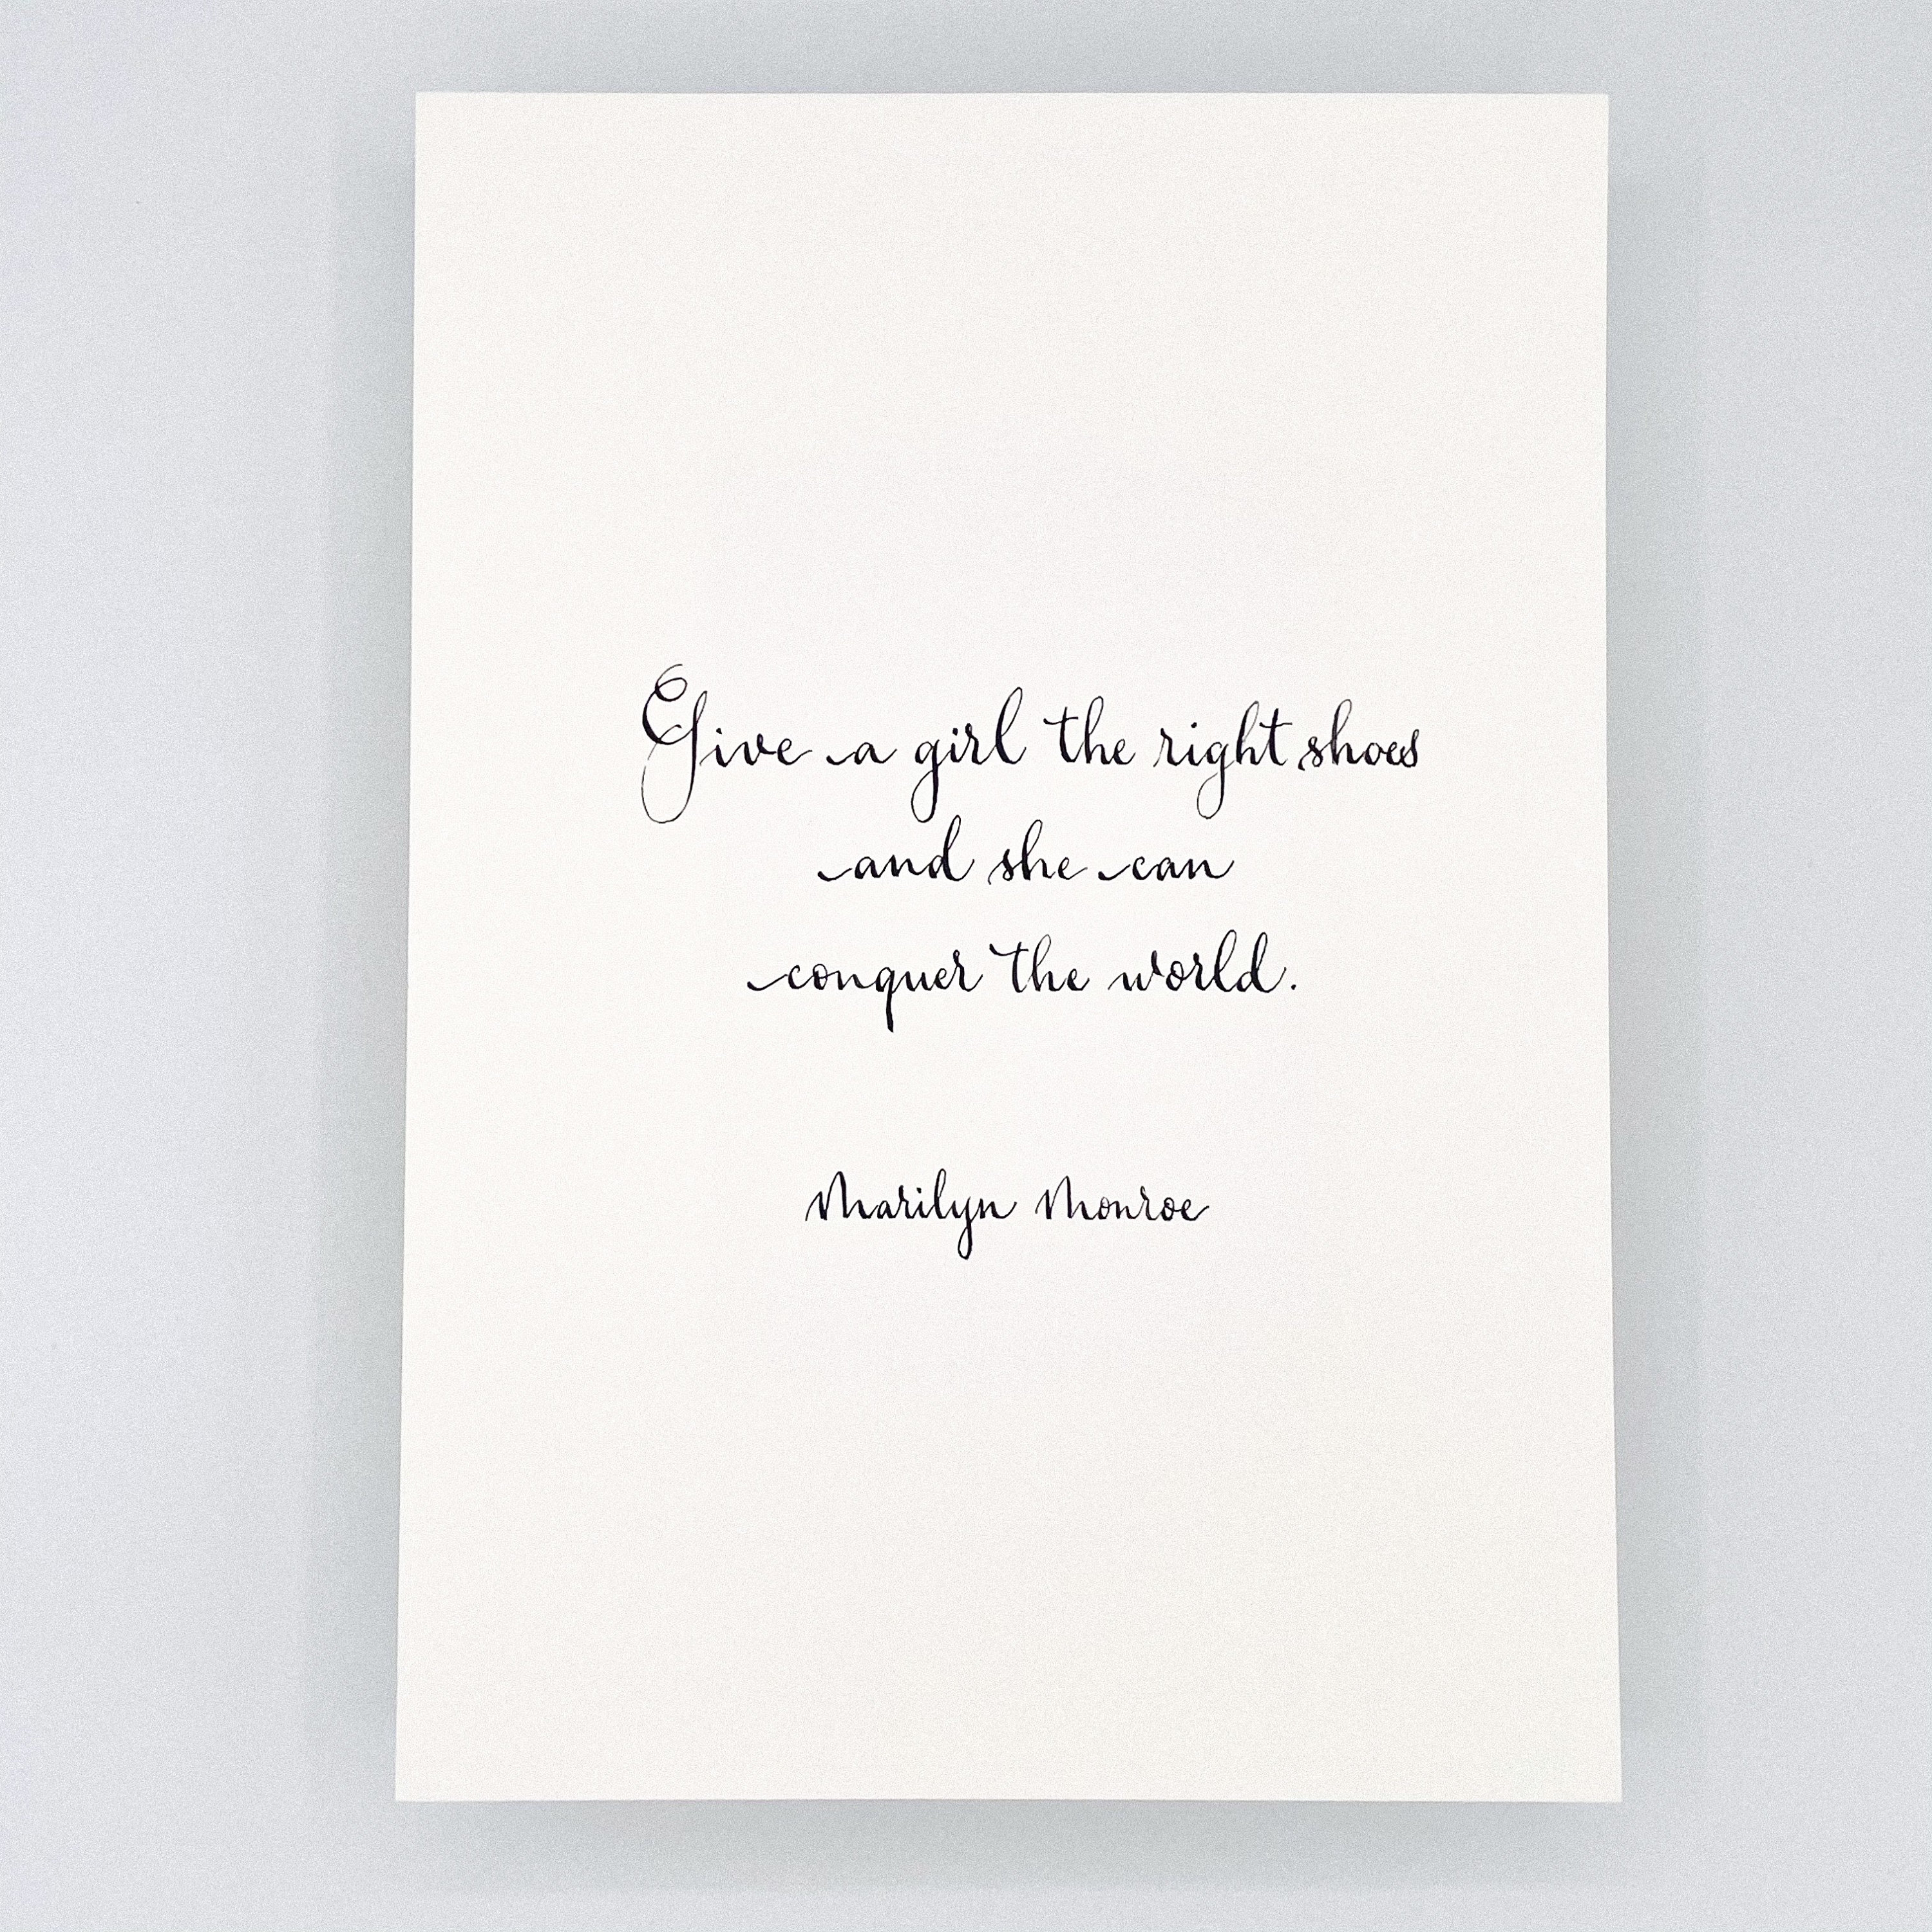 Give a girl the right shoes
and she can
conquer the world.
Marilyn Monroe